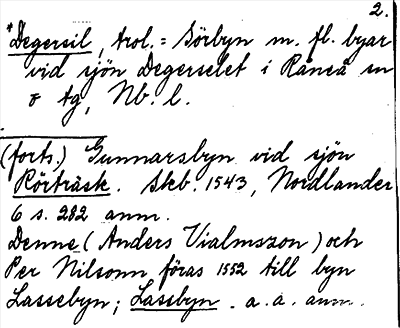 2.
*Degersil, trol. = Sörbyn m. fl. byar
vid sjön Degerselet i Råneå sn
o tg, Nb. l.
(forts.) Gunnarsbyn vid sjön
Rörträsk. Skb. 1543, Nordlander
6 s. 282 anm.
Denne (Anders Vialmszon) och
Per Nilsonn föras 1552 till byn
Lassebyn; Lassbyn. a. a. anm.